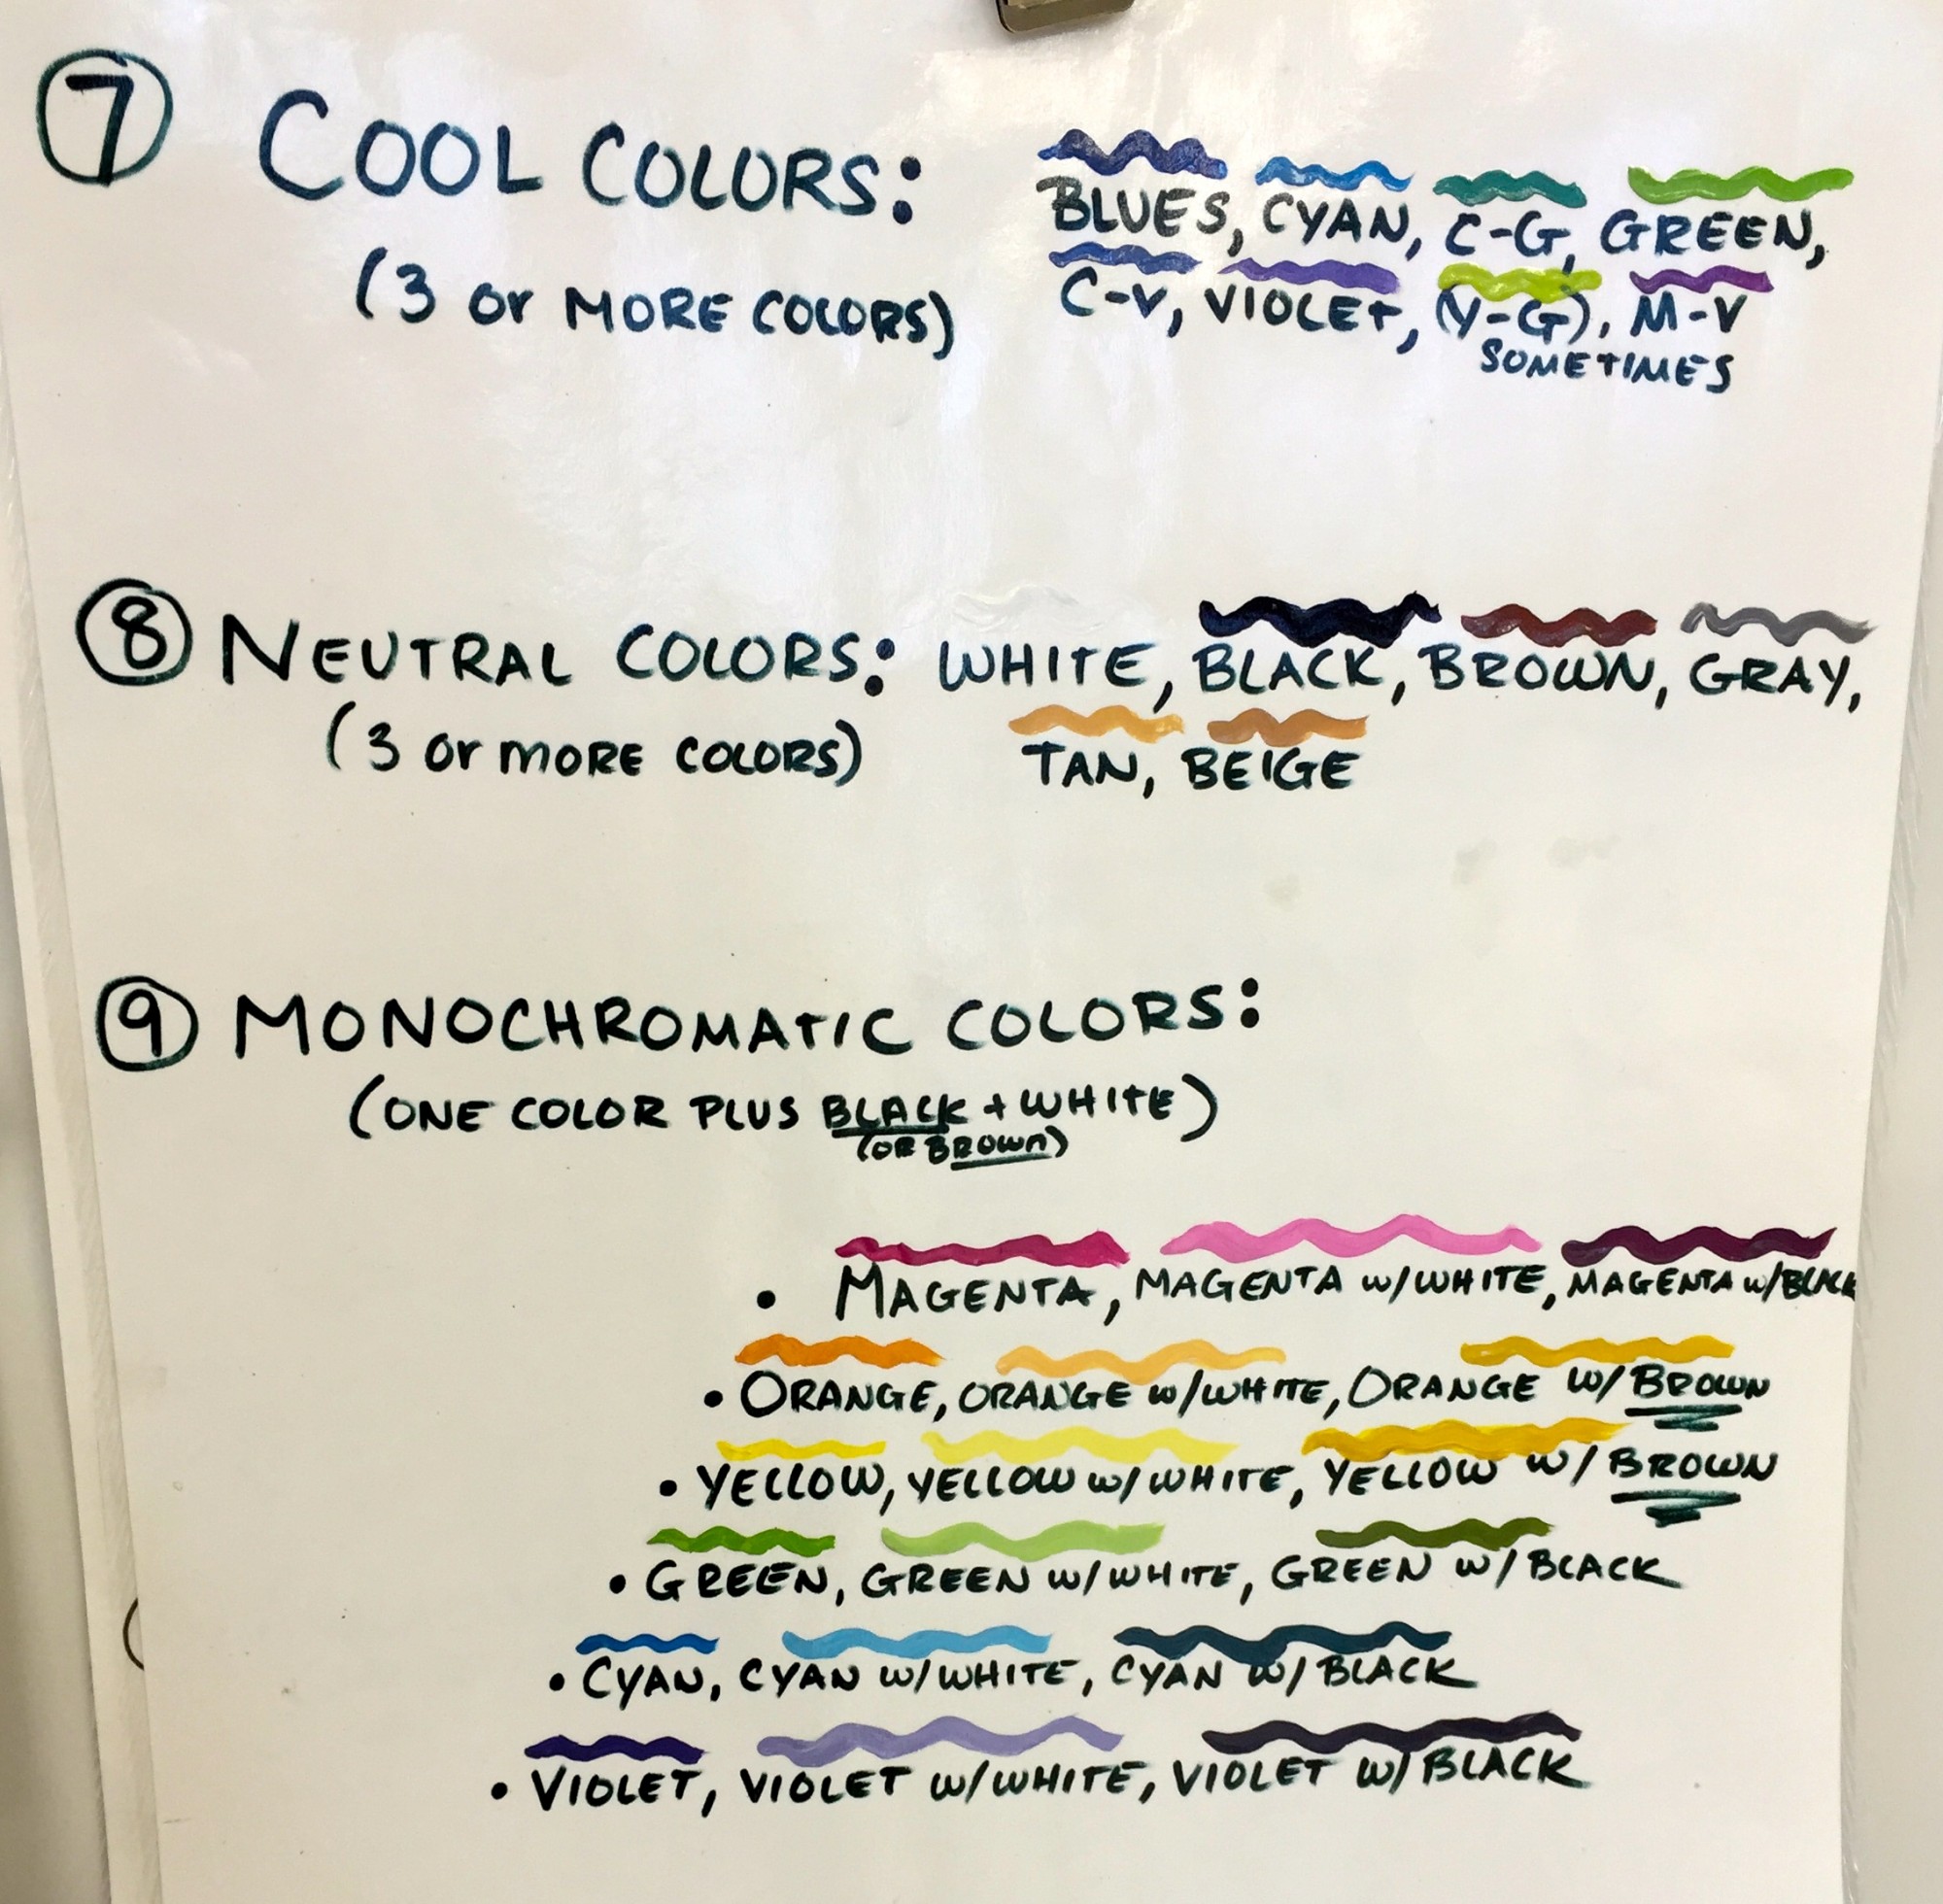 7 COOL COLORS: BLUES, CYAN, C-G, GREEN,
(3 or MORE COLORS) C-V, VIOLET, (Y-G), M-V
SOMETIMES
8 NEUTRAL COLORS: WHITE, BLACK, BROWN, GRAY,
(3 or MORE COLORS) TAN, BEIGE
9 MONOCHROMATIC COLORS:
(ONE COLOR PLUS BLACK + WHITE)
(OR BROWN)
• MAGENTA, MAGENTA w/WHITE, MAGENTA w/BLACK
• ORANGE, ORANGE w/WHITE, ORANGE w/ BROWN
• YELLOW, YELLOW w/WHITE, YELLOW w/ BROWN
• GREEN, GREEN w/WHITE, GREEN w/BLACK
• CYAN, CYAN w/WHITE, CYAN w/BLACK
• VIOLET, VIOLET w/WHITE, VIOLET w/BLACK